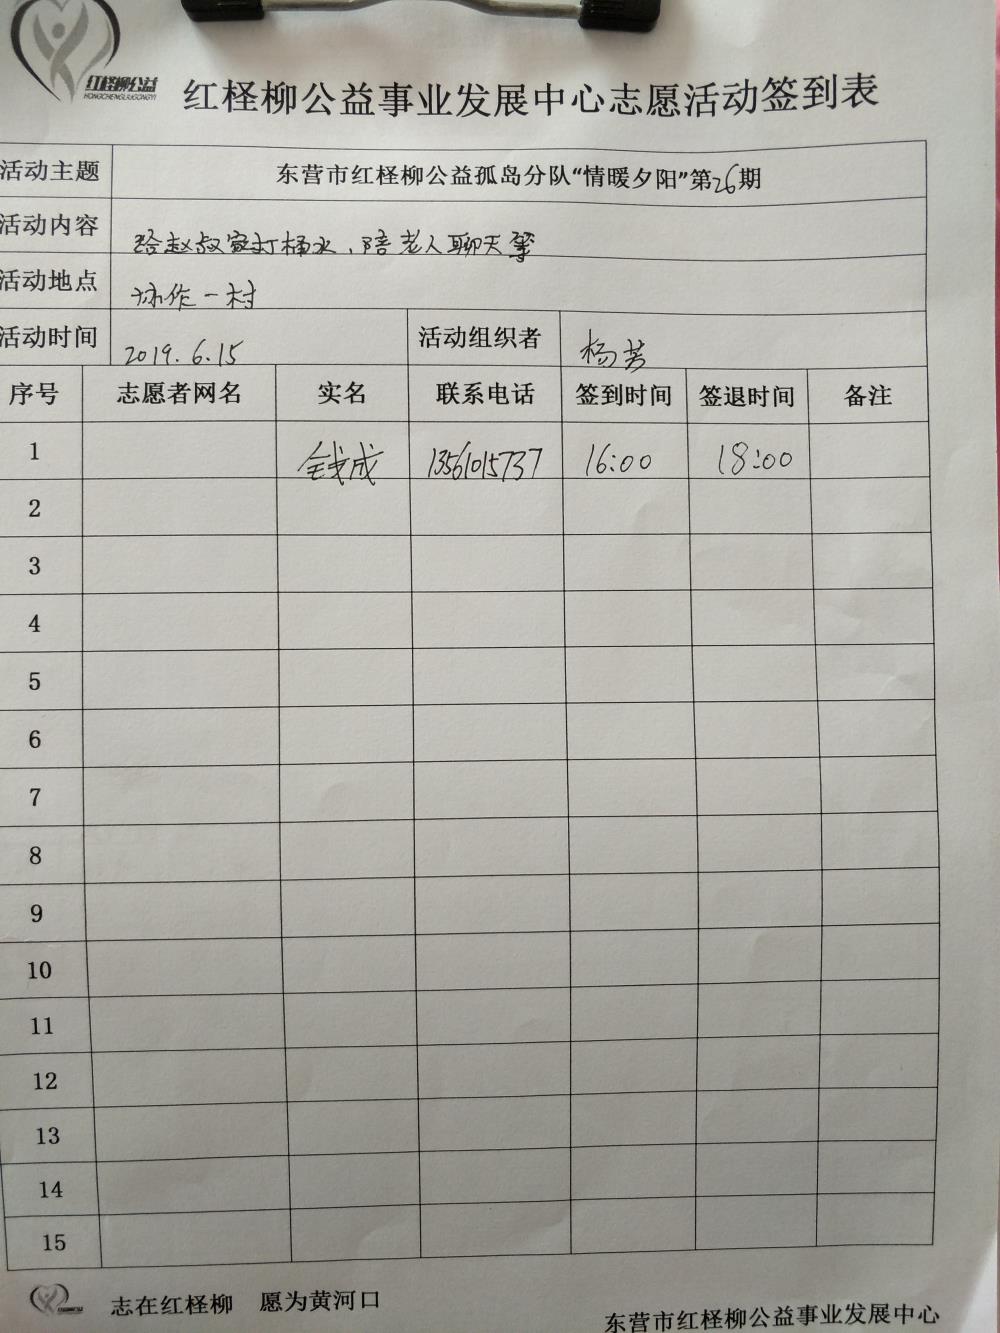 红柽柳公益
HONGCHENGLIUGONGYI
红柽柳公益事业发展中心志愿活动签到表
活动主题 东营市红柽柳公益孤岛分队“情暖夕阳”第26期
活动内容 给赵叔家打桶水，陪老人聊天等
活动地点 协作一村
活动时间 2019.6.15 活动组织者 杨芳
序号 志愿者网名 实名 联系电话 签到时间 签退时间 备注
1 钱成 13561015737 16:00 18:00
2
3
4
5
6
7
8
9
10
11
12
13
14
15
志在红柽柳 愿为黄河口
东营市红柽柳公益事业发展中心